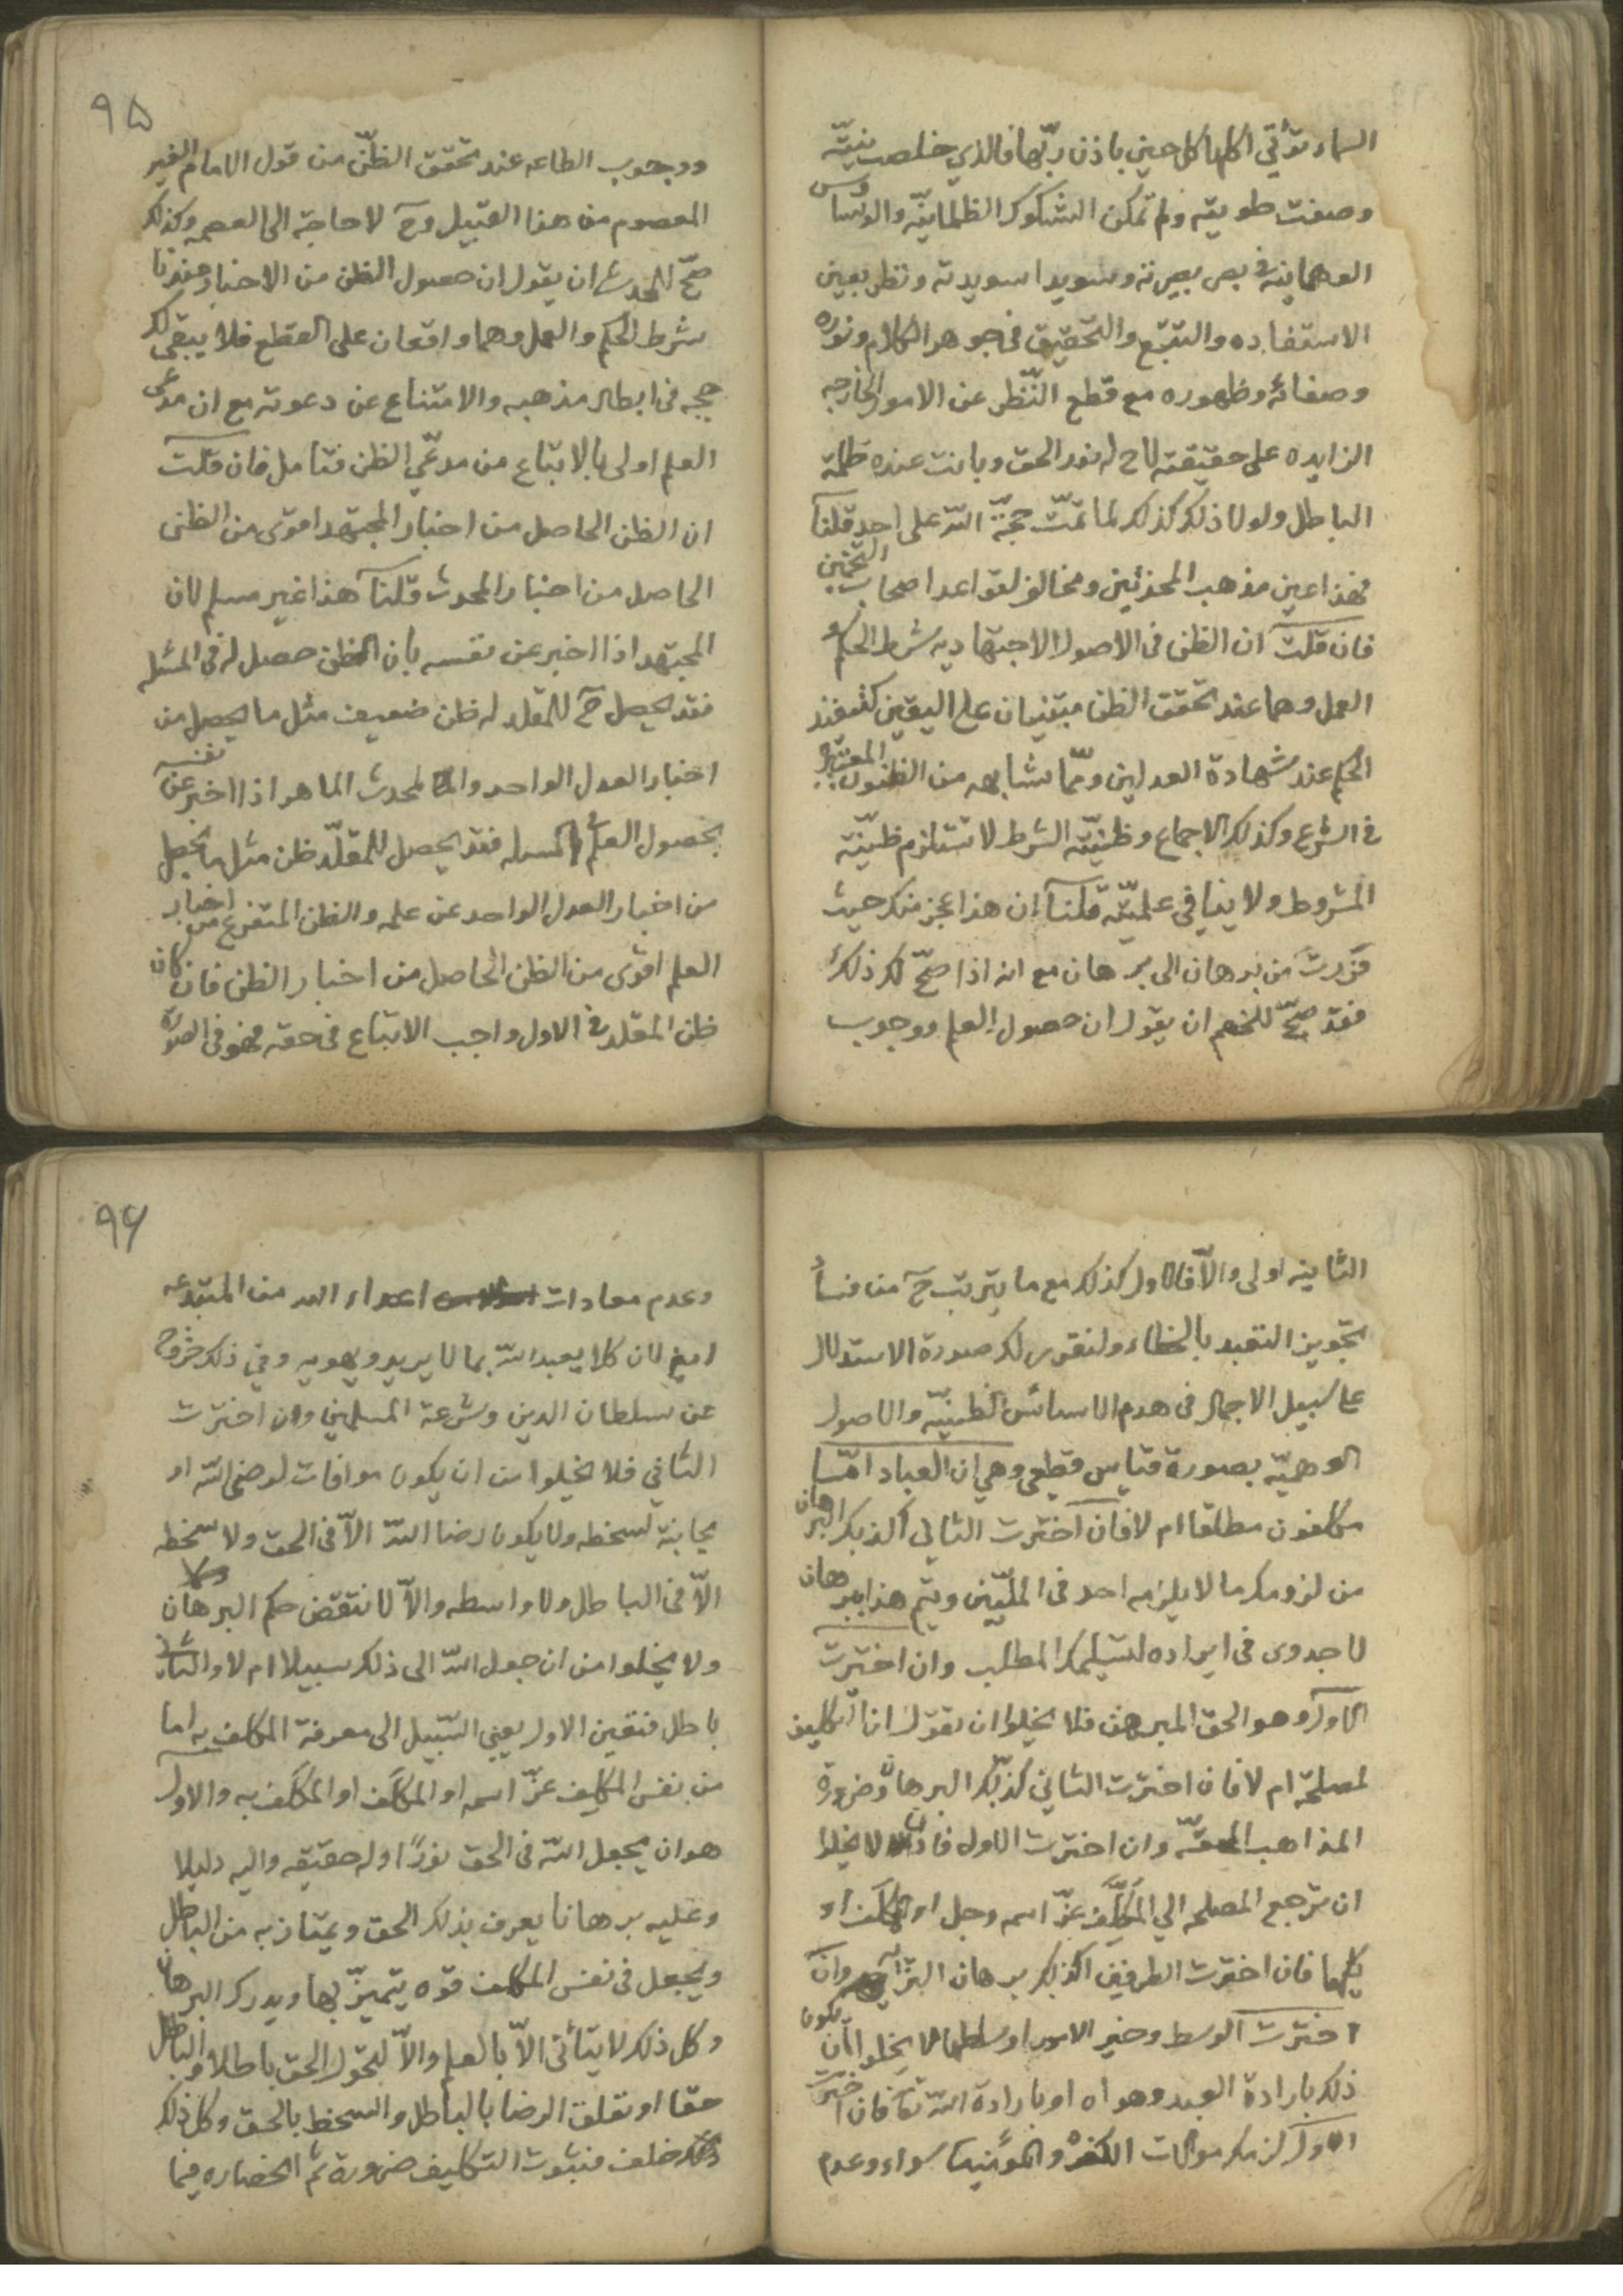 السماء تؤتي اكلها كل حين باذن ربّها فالذي خلصت نيّته
وصفت طويته ولم تمكن الشكوك الظلمانيّه والوسٰاوس
الوهمانيه في بصر بصيرته وسويدا سويدته ونظر بعين
الاستفاده والتتبّع والتحقيق في جوهر الكلام ونوره
وصفائه وظهوره مع قطع النّظر عن الامور الخارجه
الزايده على حقيقته لاح له نور الحق وبانت عنده ظلمة
الباطل ولولا ذلك كذلك لما تمّت حجّة اللّه على احد قلنا
فهذا عين مذهب المحدثين ومخالف لقواعد اصحاب التخمين
فان قلت ان الظن في الاصول الاجتهاديه شرط الحكم و
العمل وهما عند تحقق الظن مبتنيان على اليقين كتنفيذ
الحكم عند شهادة العدلين وممّا يشابهه من الظنون المعتبرة
في الشرع وكذلك الاجماع وظنيّة الشرط لا تستلزم ظنيّة
المشروط ولا ينافي علميّته قلنا ان هذا عجز منك حيث
فررت من برهان الى برهان مع انه اذا صحّ لك ذلك
فقد صحّ للخصم ان يقول ان حصول العلم ووجوب
٩۵
ووجوب الطاعه عند تحقق الظنّ من قول الامام الغير
المعصوم من هذا القبيل وح لا حاجة الى العصمه وكذلك
صحّ للمحدث ان يقول ان حصول الظن من الاخبار عندنا
شرط الحكم والعمل وهما واقعان على القطع فلا يبقى لك
حجه في ابطال مذهبه والامتناع عن دعوته مع ان مدعى
العلم اولى بالاتباع من مدعّي الظن فتامل فان قلت
ان الظن الحاصل من اخبار المجتهد اقوى من الظن
الحاصل من اخبار المحدث قلنا هذا غير مسلم لان
المجتهد اذا اخبر عن نفسه بان الظن حصل له في المسئله
فقد يحصل ح للمقلد له ظن ضعيف مثل ما يحصل من
اخبار العدل الواحد والمحدث الماهر اذا اخبر عن نفسه
بحصول العلم في المسله فقد يحصل للمقلّد ظن مثل ما يحصل
من اخبار العدل الواحد عن علمه والظن المتفرع من اخبار
العلم اقوى من الظن الحاصل من اخبار الظن فان كان
ظن المقلد في الاول واجب الاتباع في حقه فهو في الصورة
الثانيه اولى والاّ فالاول كذلك مع ما يترتب ح من فساد
تجويز التعبد بالخطاء ولنقرر لك صورة الاستدلال
على سبيل الاجمال في هدم الاساس الظنيّه والاصول
الوهميّه بصورة قياس قطعي وهي ان العباد امّا
مكلفون مطلقا ام لا فان اخترت الثاني اكذبك البرهان
من لزومك ما لا يلزمه احد في المليّين ويتم هذا برهان
لا جدوى في ايراده لتسليمك المطلب وان اخترت
الاول وهو الحق المبرهن فلا يخلوا ان تقول ان التكليف
لمصلحة ام لا فان اخترت الثاني كذبّك البرهان وضرورة
المذاهب الحقّه وان اخترت الاول فاذن لا يخلوا
ان ترجع المصلحه الي المكلِّف عزّ اسمه وجل او المكلَّف او
كليهما فان اخترت الطرفين اكذبك برهان التنزيه وان
اخترت الوسط وخير الامور اوسطها لا يخلوا ان يكون
ذلك بارادة العبد وهواه او بارادة اللّه تعالى فان اخترت
الاول لزمك موالات الكفرة والمؤمنين سواء وعدم
٩۶
وعدم معادات اعداء اللّه من المبتدعه
ايض لان كلا يعبد اللّه بما لا يريد ويهويه وفي ذلك خروج
عن سلطان الدين وشرعة المسلمين وان اخترت
الثاني فلا يخلوا من ان يكون موافات لرضى اللّه او
مجانبة لسخطه ولا يكون رضا اللّه الاّ في الحق ولا سخطه
الاّ في الباطل ولا واسطه والاّ لانتقض حكم البرهان
ولا يخلوا من ان جعل اللّه الى ذلك سبيلا ام لا والثاني
باطل فتعين الاول يعني السّبيل الى معرفة المكلف به اما
من نفس المكلِف عزّ اسمه او المكلَف او المكلَف به والاول
هو ان يجعل اللّه في الحق نورًا وله حقيقه واليه دليلا
وعليه برهانا يعرف بذلك الحق ويمتاز به من الباطل
ويجعل في نفس المكلف قوه يتميّز بها ويدرك البرهان
وكل ذلك لا يتأتى الاّ بالعلم والاّ لتحول الحق باطلا والباطل
حقا او تعلق الرضا بالباطل والسخط بالحق وكل ذلك
خلف فثبوت التكليف ضرورة ثم انحصاره فيما